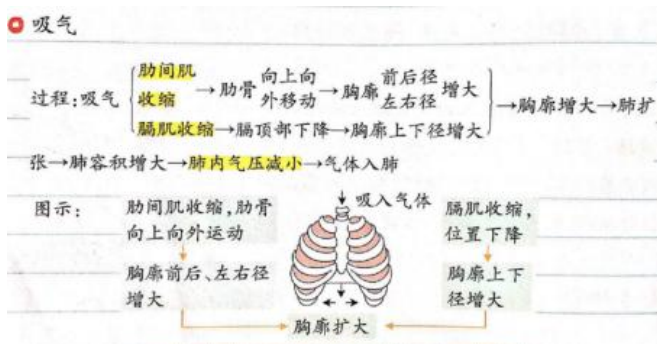 吸气
过程:吸气
肋间肌
收缩
→肋骨
向上向
外移动
→胸廓
前后径
左右径
增大
膈肌收缩→膈顶部下降→胸廓上下径增大
→胸廓增大→肺扩
张→肺容积增大→肺内气压减小→气体入肺
图示:
肋间肌收缩,肋骨
向上向外运动
胸廓前后、左右径
增大
吸入气体
膈肌收缩,
位置下降
胸廓上下
径增大
胸廓扩大